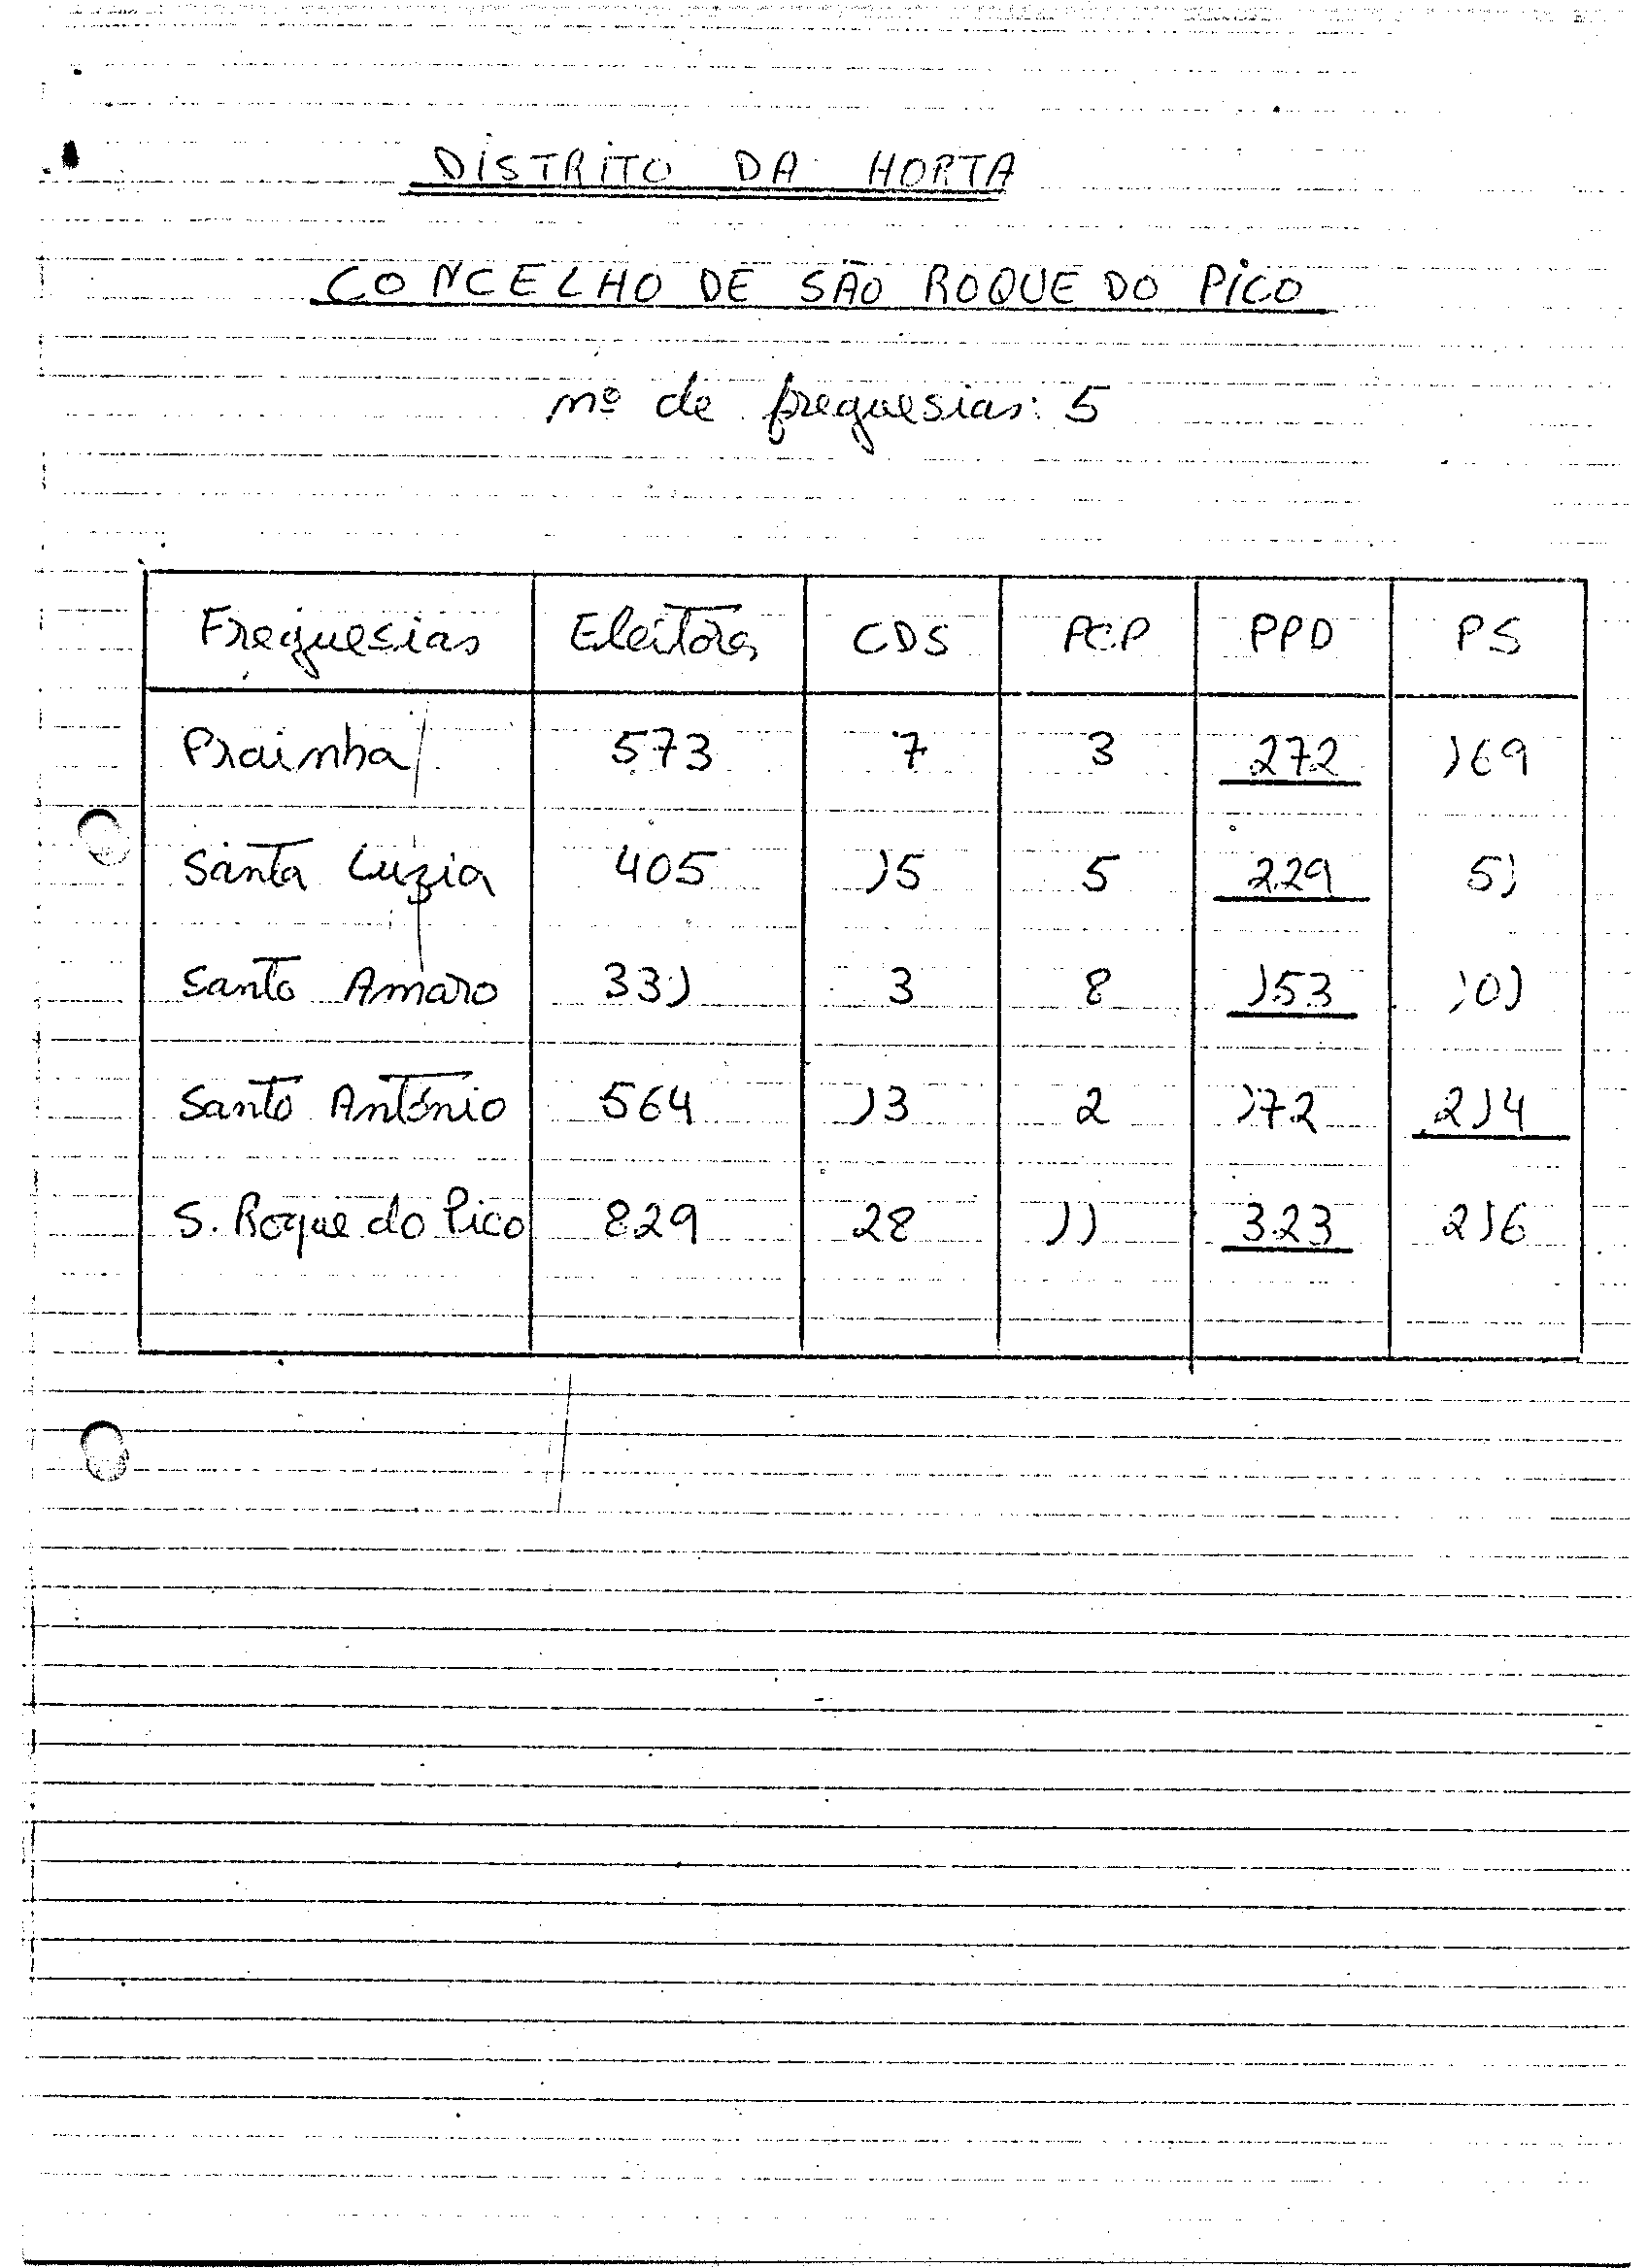 DISTRITO DA HORTA
CONCELHO DE SÃO ROQUE DO PICO
nº de freguesias: 5
Freguesias Eleitores CDS PCP PPD PS
Prainha 573 7 3 272 169
Santa Luzia 405 15 5 229 51
Santo Amaro 331 3 8 153 101
Santo António 564 13 2 172 214
S. Roque do Pico 829 28 11 323 216